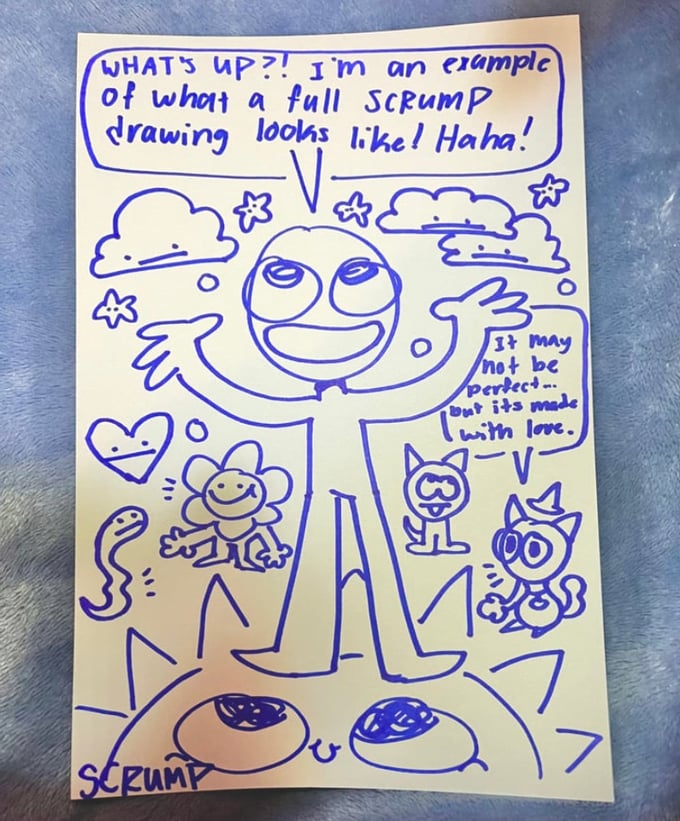 WHAT'S UP?! I'm an example
of what a full SCRUMP
drawing looks like! Haha!
It may
not be
perfect...
but its made
with love.
SCRUMP